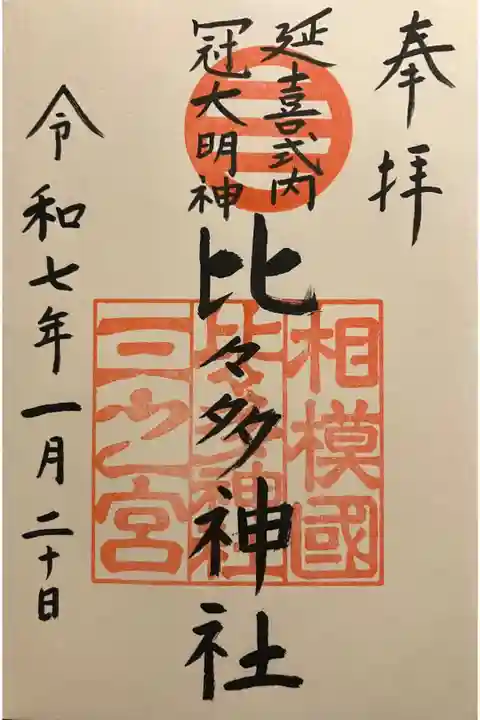 奉拝
延喜式内
冠大明神
比々多神社
相模國
比々多神社
三之宮
令和七年一月二十日